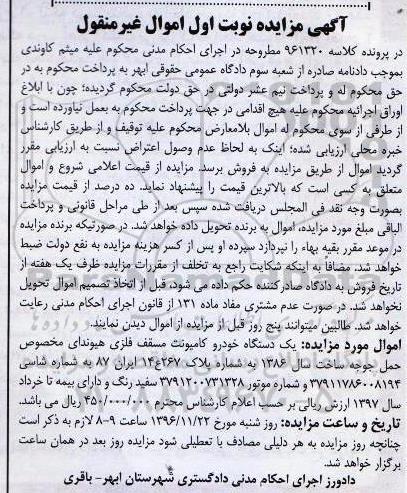 آگهی مزایده نوبت اول اموال غیرمنقول
در پرونده کلاسه ۹۶۱۳۲۰ مطروحه در اجرای احکام مدنی محکوم علیه میثم کاوندی
بموجب دادنامه صادره از شعبه سوم دادگاه عمومی حقوقی ابهر به پرداخت محکوم به در
حق محکوم له و پرداخت نیم عشر دولتی در حق دولت محکوم گردیده؛ چون با ابلاغ
اوراق اجرائیه محکوم علیه هیچ اقدامی در جهت پرداخت محکوم به بعمل نیاورده است و
از طرفی از سوی محکوم له اموال بلامعارض محکوم علیه توقیف و از طریق کارشناس
خبره محلی ارزیابی شده؛ اینک به لحاظ عدم وصول اعتراض نسبت به ارزیابی مقرر
گردید اموال از طریق مزایده به فروش برسد. مزایده از قیمت اعلامی شروع و اموال
متعلق به کسی است که بالاترین قیمت را پیشنهاد نماید. ده درصد از قیمت مزایده
بصورت وجه نقد فی المجلس دریافت شده سپس بعد از طی مراحل قانونی و پرداخت
الباقی مبلغ مورد مزایده، اموال به برنده تحویل داده خواهد شد. در صورتیکه برنده مزایده
در موعد مقرر بقیه بهاء را نپردازد سپرده او پس از کسر هزینه مزایده به نفع دولت ضبط
خواهد شد. مضافاً به اینکه شکایت راجع به تخلف از مقررات مزایده ظرف یک هفته از
تاریخ فروش به دادگاه صادرکننده حکم داده می شود، قبل از اتخاذ تصمیم اموال تحویل
نخواهد شد. در صورت عدم مشتری مفاد ماده ۱۳۱ از قانون اجرای احکام مدنی رعایت
خواهد شد. طالبین میتوانند پنج روز قبل از مزایده از اموال دیدن نمایند.
اموال مورد مزایده: یک دستگاه خودرو کامیونت مسقف فلزی هیوندای مخصوص
حمل جوجه ساخت سال ۱۳۸۶ به شماره پلاک ۲۶۷ع۱۴ ایران ۸۷ به شماره شاسی
۳۷۹۱۱۷۸۶۰۰۸۱۹۴ و شماره موتور ۳۷۹۱۲۰۰۷۳۱۳۲۸ سفید رنگ و دارای بیمه تا خرداد
سال ۱۳۹۷ ارزش ریالی بر حسب اعلام کارشناس محترم ۴۵۰/۰۰۰/۰۰۰ ریال می باشد.
تاریخ و ساعت مزایده: روز شنبه مورخ ۱۳۹۶/۱۱/۲۲ ساعت ۹-۸ لازم به ذکر است
چنانچه روز مزایده به هر دلیلی مصادف با تعطیلی شود مزایده روز بعد در همان ساعت
برگزار خواهد شد.
دادورز اجرای احکام مدنی دادگستری شهرستان ابهر- باقری